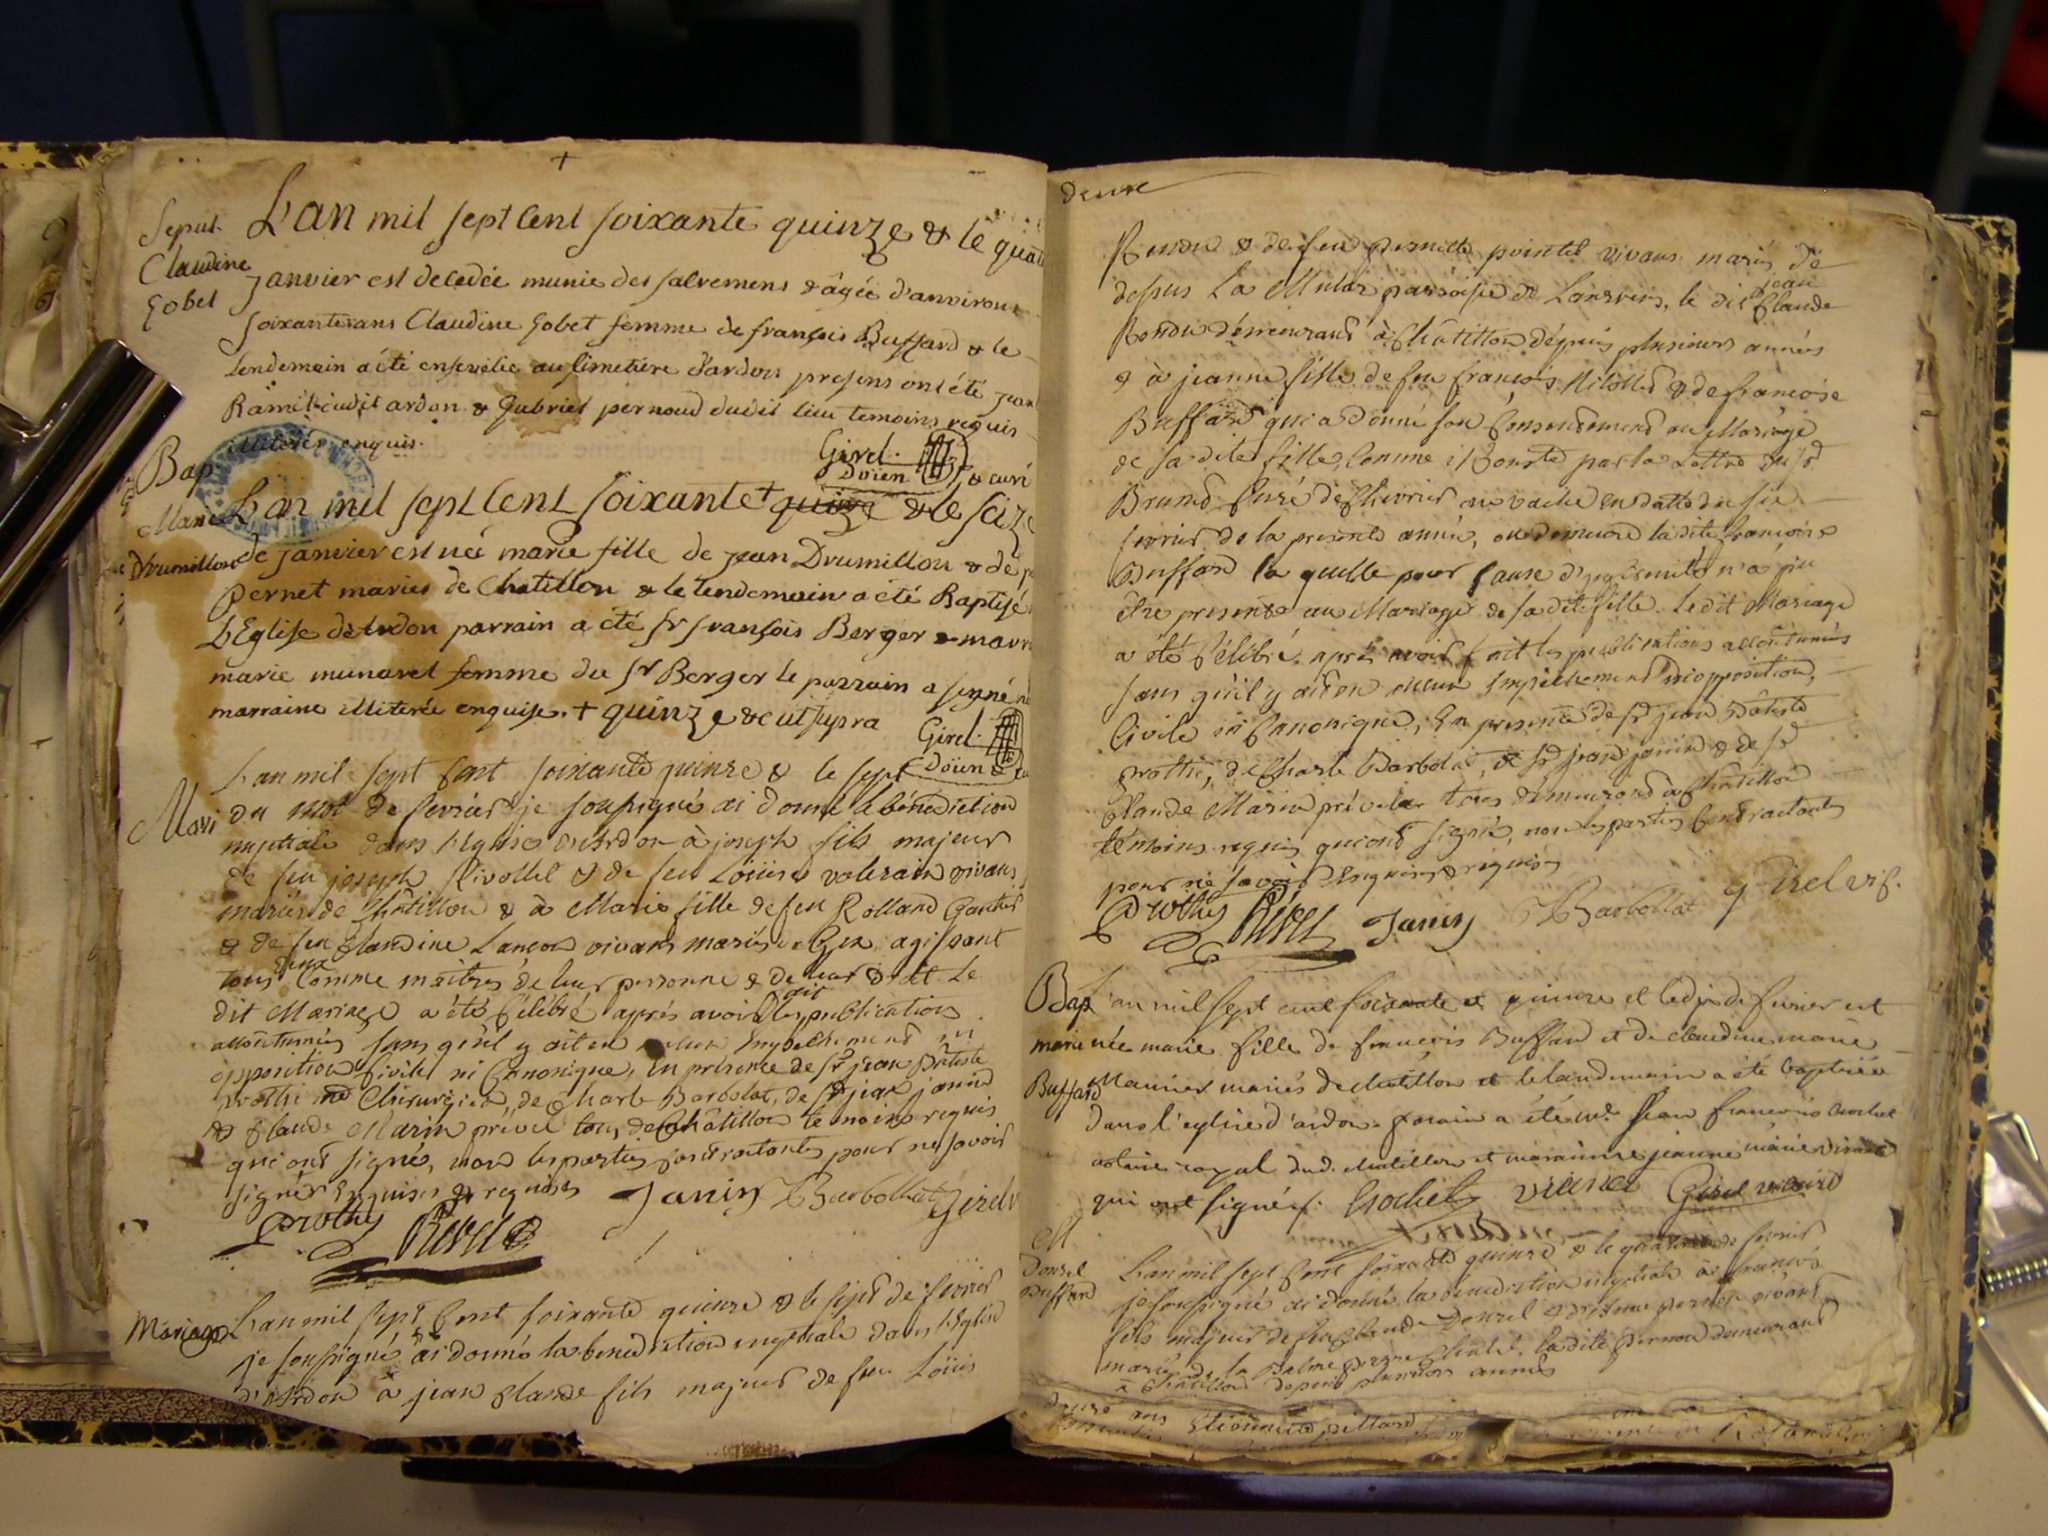 Sepul.
Claudine
Gobet
L'an mil sept Cent soixante quinze & le
janvier est decedée munie des sacremens & âgée d'anviron
soixante ans Claudine Gobet femme de françois Buffard & le
lendemain a été ensevelie au simetiere d'ardon presens ont été jean
Ramel dudit ardon & Gabriel pernoud dudit lieu temoins requis
illiterés enquis.
Girel
Doïen & curé
Bap
Marie
Drumillon
L'an mil sept Cent soixante + quinze & le seize
de janvier est née marie fille de jean Drumillon & de
pernet mariés de Chatillon & le lendemain a été Baptisée
L'Eglise d'ardon parrain a été sr françois Berger & marr
marie munaret femme du sr Berger le parrain a signé
marraine illiterée enquise. + quinze & c ut supra
Girel
Doïen
Mari
L'an mil sept Cent soixante quinze & le sept
du mois de fevrier je soussigné ai donné la bénédiction
nuptiale dans l'Eglise d'Ardon à joseph fils majeur
de feu joseph Rivollet & de feu Loüise valerain vivans
mariés de Châtillon & à Marie fille de feu Rolland Gautier
& de feu Claudine Lançon vivans mariés de Gex agissant
tous deux Comme maîtres de leur personne & de leur & Le
dit Mariage a été Célébré après avoir fait les publications
accoûtumées sans qu'il y ait eu aucun Empêchement ni
opposition Civile ni Canonique, En présence de sr jean Bâtiste
prothi Chirurgien, de Charle Barbolat, de sr jean janin
& Claude Marin prével tous de Châtillon témoins requis
qui ont signé, non les parties Contractantes pour ne savoir
signér Enquises & requises
Janin Barbollat Girel v
Prothy Prevel
Mariage
L'an mil sept Cent soixante quinze & le sept de fevrier
je soussigné ai donné la benediction nuptiale dans l'Eglise
d'Ardon à jean Claude fils majeur de feu Loüis
deuxe
Rendu & de feu pernette pointet vivans mariés de
dessus La Mulaz paroisse de Lanerens, le dit jean Claude
Rendu démeurant à Châtillon dépuis plusieurs années
& à jeanne fille de feu françois Nicollet & de françoise
Buffard qui a donné son Consentement au Mariage
de sa dite fille, Comme il Conste par la Lettre du sr
Brunod Curé de en datte du six
fevrier de la presente année, où demeure la dite françoise
Buffard la quelle pour Cause d'infirmité n'a pu
être presente au Mariage de sa dite fille. Le dit Mariage
a été Célébré, après avoir fait les publications accoûtumées
sans qu'il y ait eu aucun Empêchement ni opposition,
Civile ni Canonique, En presence de sr jean Bâtiste
prothi, de Charle Barbolat, de sr jean janin & de sr
Claude Marin prével tous demeurants à Châtillon
témoins requis qui ont signé, non les parties Contractantes
pour ne savoir Enquises & requises
Prothy Prevel Janin Barbollat Girel vic.
Bap
marie
Buffard
L'an mil sept cent soixante et quinze et le dix de fevrier est
née marie fille de francois Buffard et de claudine marie
Maunier mariés de chatillon et le landemain a été baptisée
dans l'eglise d'ardon. parain a été me. Jean francois Crochet
notaire royal dud. chatillon et maraine jeanne marie
qui ont signés. Crochet vianet Girel vicaire
M
Donzel
Buffard
L'an mil sept Cent soixante quinze & le de fevrier
je soussigné ai donné la benediction nuptiale à françois
fils majeur de feu Claude Donzel & d'Etienne pernod vivans
mariés de la Balme la dite pernod demeurant
à Châtillon depuis plusieurs années
ans Etiennette pillard